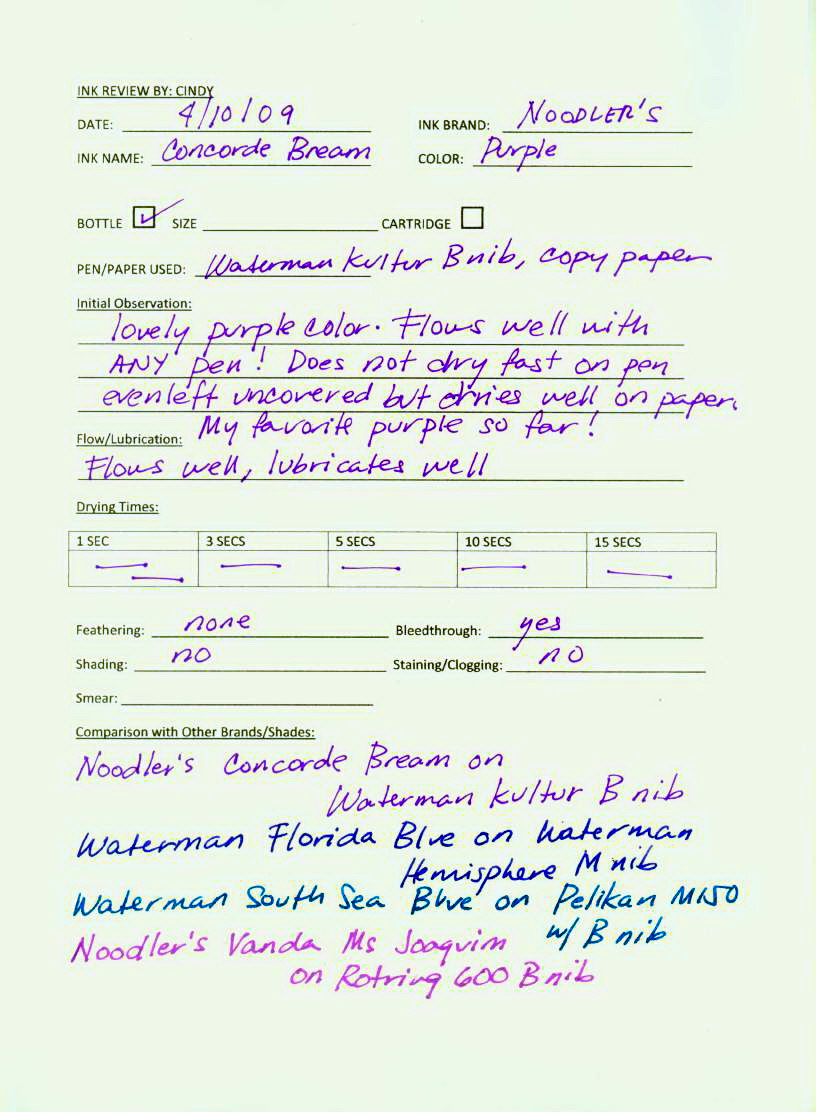 INK REVIEW BY: CINDY
DATE: 4/10/09 INK BRAND: NOODLER'S
INK NAME: Concorde Bream COLOR: Purple
BOTTLE SIZE CARTRIDGE
PEN/PAPER USED: Waterman Kultur B nib, copy paper
Initial Observation:
lovely purple color. Flows well with
ANY pen! Does not dry fast on pen
even left uncovered but dries well on paper.
My favorite purple so far!
Flow/Lubrication:
Flows well, lubricates well
Drying Times:
1 SEC 3 SECS 5 SECS 10 SECS 15 SECS
Feathering: none Bleedthrough: yes
Shading: no Staining/Clogging: no
Smear:
Comparison with Other Brands/Shades:
Noodler's Concorde Bream on
Waterman Kultur B nib
Waterman Florida Blue on Waterman
Hemisphere M nib
Waterman South Sea Blue on Pelikan M150
w/ B nib
Noodler's Vanda Ms Joaquim
on Rotring 600 B nib